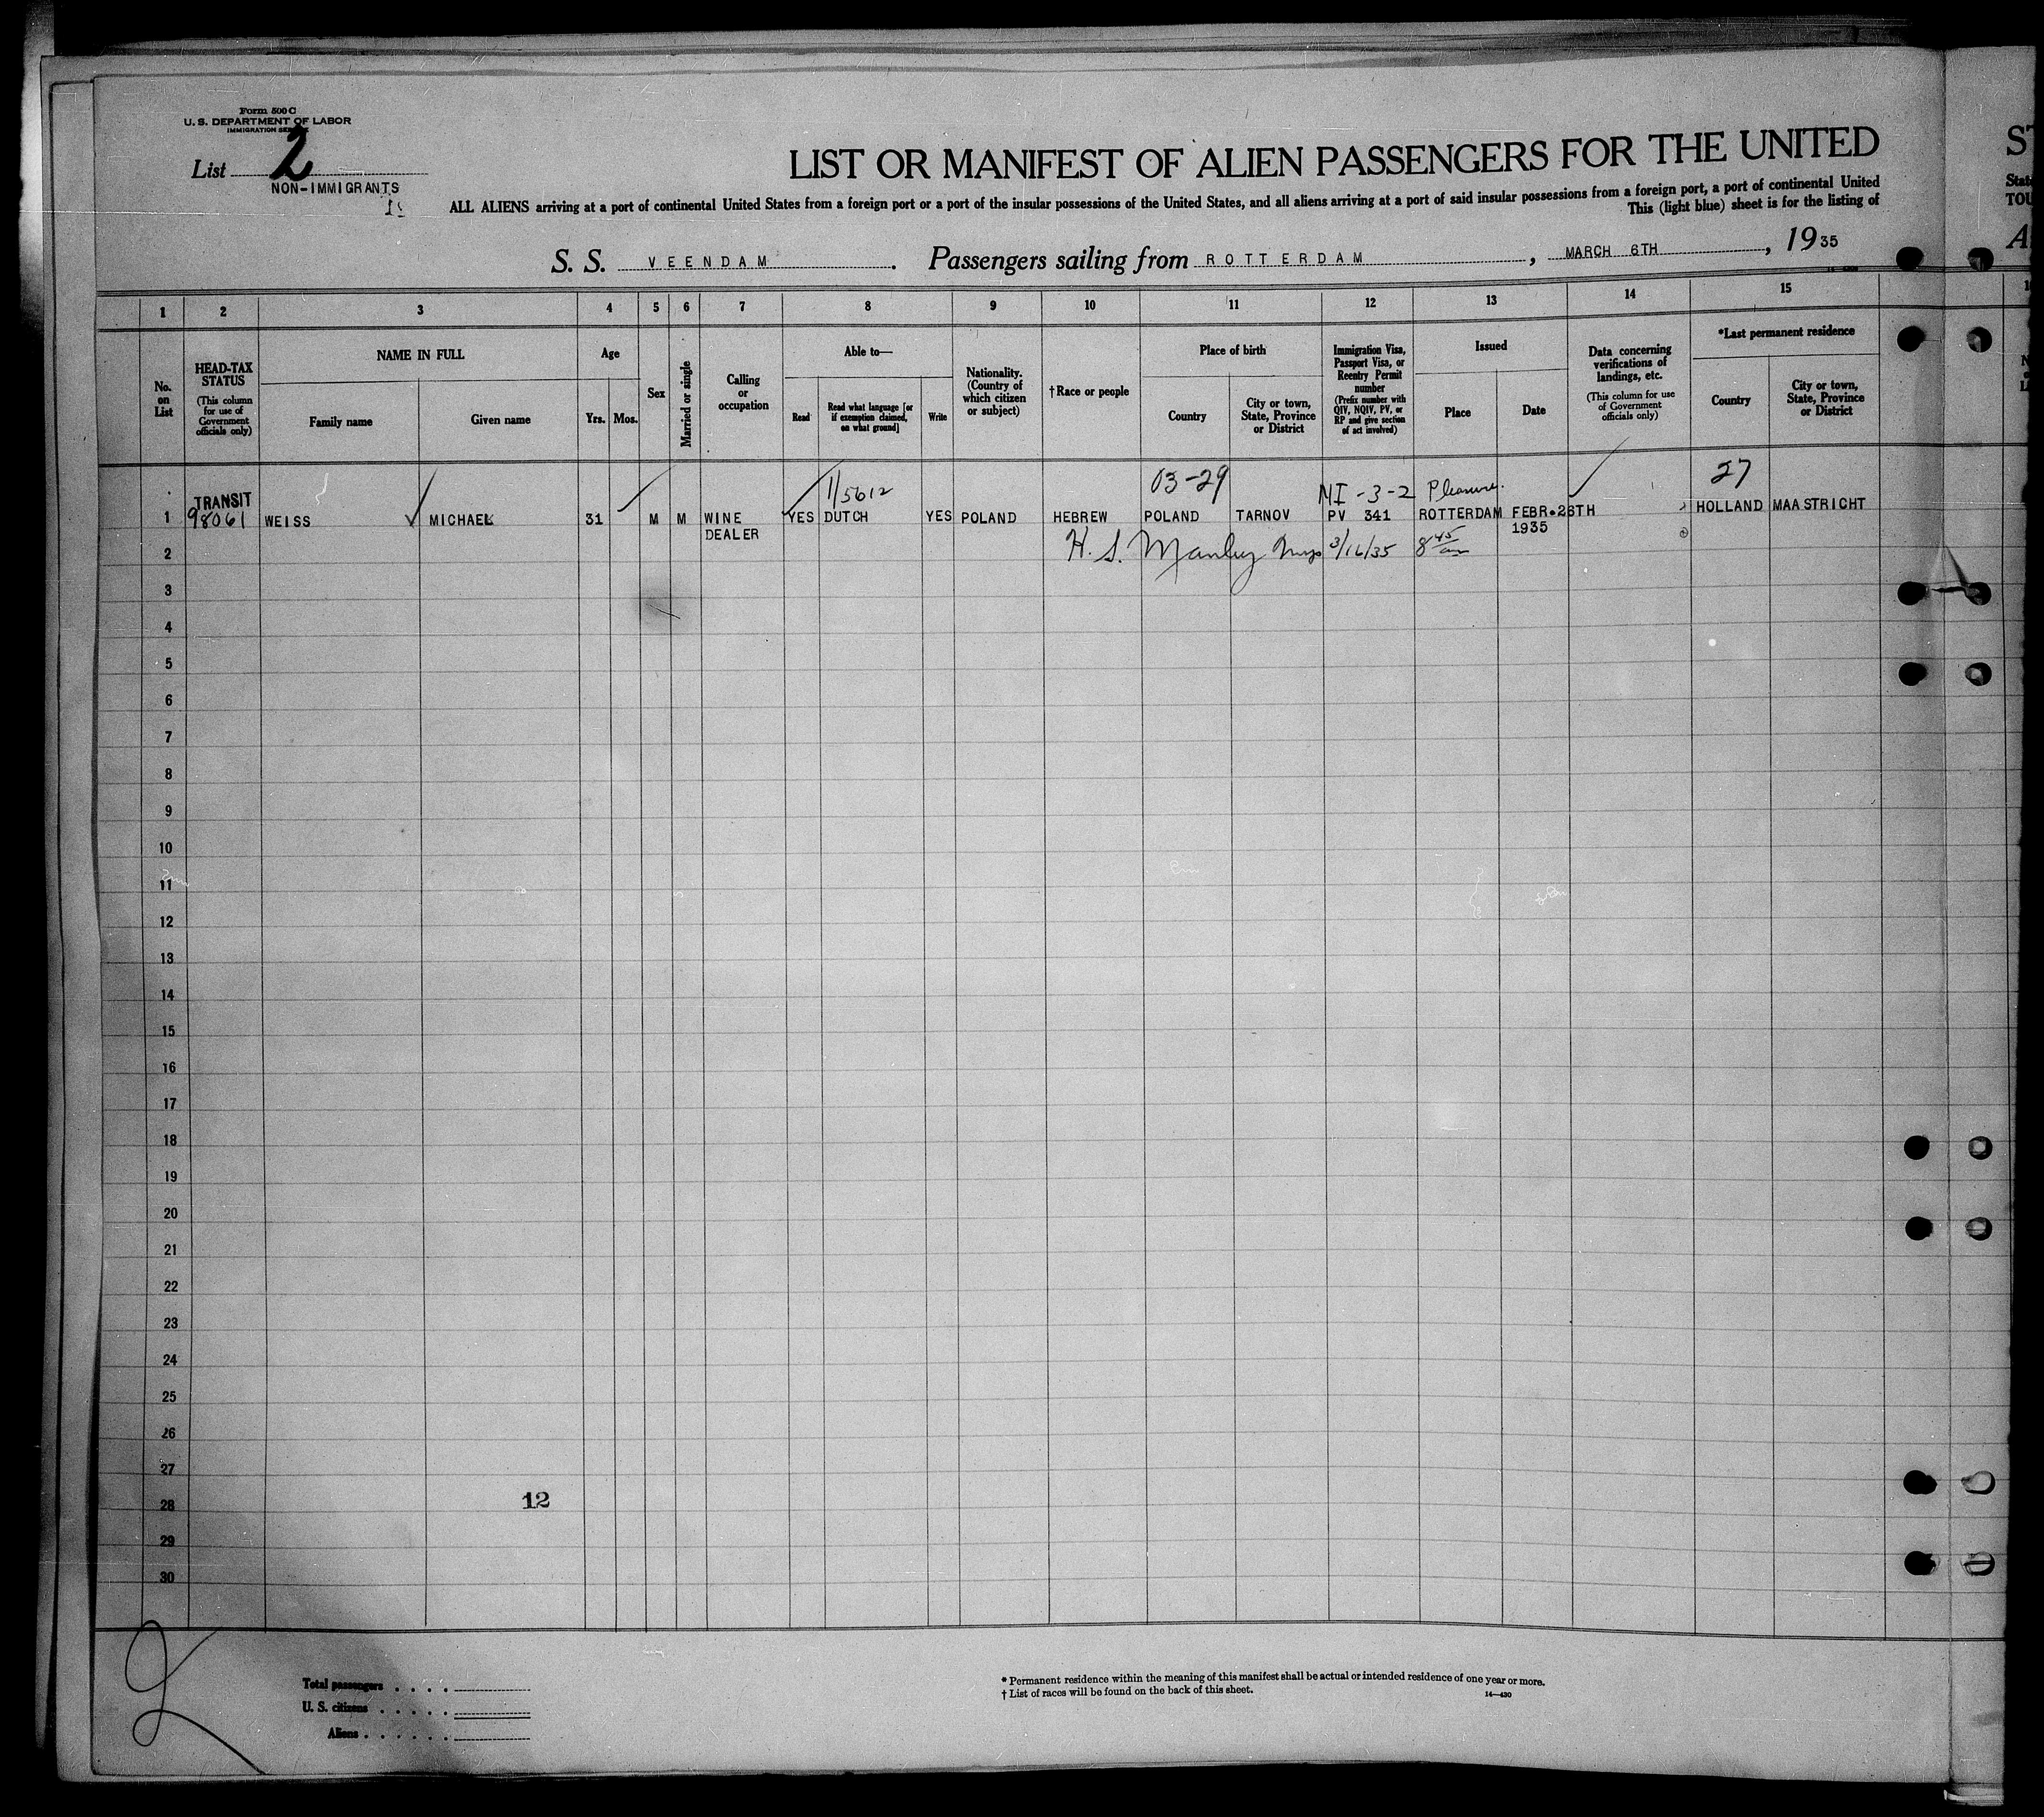 Form 500 C
U. S. DEPARTMENT OF LABOR
IMMIGRATION SERVICE
List 2
NON-IMMIGRANTS
LIST OR MANIFEST OF ALIEN PASSENGERS FOR THE UNITED
ST
ALL ALIENS arriving at a port of continental United States from a foreign port or a port of the insular possessions of the United States, and all aliens arriving at a port of said insular possessions from a foreign port, a port of continental United
Stat
This (light blue) sheet is for the listing of
TOU
S. S. VEENDAM. Passengers sailing from ROTTERDAM, MARCH 6TH, 1935
1 2 3 4 5 6 7 8 9 10 11 12 13 14 15
No. on List
HEAD-TAX STATUS
(This column for use of Government officials only)
NAME IN FULL
Family name
Given name
Age
Yrs. Mos.
Sex
Married or single
Calling or occupation
Able to—
Read
Read what language [or if exemption claimed, on what ground]
Write
Nationality. (Country of which citizen or subject)
†Race or people
Place of birth
Country
City or town, State, Province or District
Immigration Visa, Passport Visa, or Reentry Permit number
(Prefix number with QIV, NQIV, PV, or RP and give section of act involved)
Issued
Place
Date
Data concerning verifications of landings, etc.
(This column for use of Government officials only)
*Last permanent residence
Country
City or town, State, Province or District
TRANSIT 1/5612 03-29 NI-3-2 Pleasure. 27
1 98061 WEISS MICHAEL 31 M M WINE YES DUTCH YES POLAND HEBREW POLAND TARNOV PV 341 ROTTERDAM FEBR.26TH HOLLAND MAASTRICHT
DEALER 1935
2 H. S. Manley 3/16/35 8 45 am
3
4
5
6
7
8
9
10
11
12
13
14
15
16
17
18
19
20
21
22
23
24
25
26
27
28 12
29
30
2
Total passengers . . . .
U. S. citizens . . . . .
Aliens . . . . . .
* Permanent residence within the meaning of this manifest shall be actual or intended residence of one year or more.
† List of races will be found on the back of this sheet.
14—430